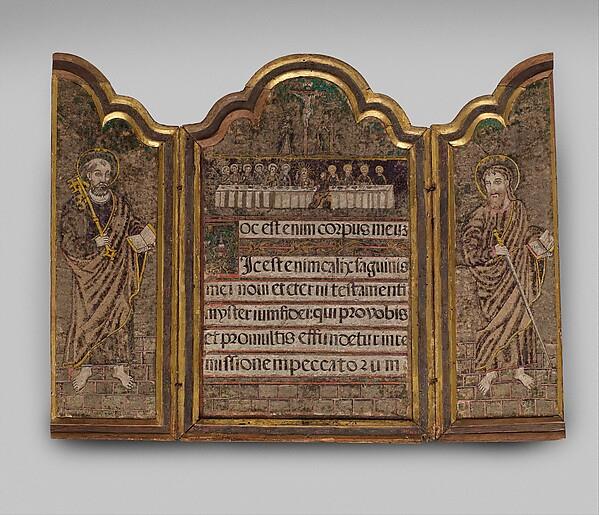 oc est enim corpus meuʒ
Jc est enim calix saguinis
mei noui et eterni testamenti
mysterium fidei: qui pro vobis
et pro multis effundetur in re
missionem peccatorum